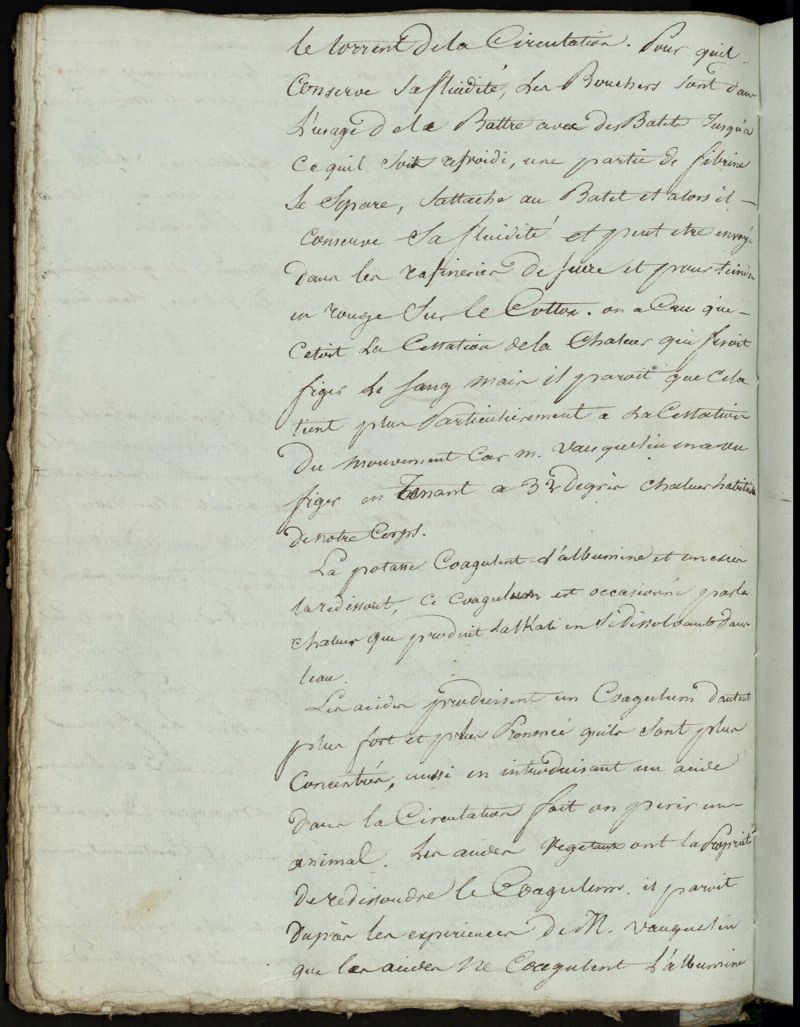 le torrent de la Circulation. Pour quil
Conserve sa fluidité, Les Bouchers sont dans
L'usage de le Battre avec des Batets Jusqu'a
ce quil soit refroidi, une partie de fibrine
se separe, sattache au Batet et alors il —
conserve sa fluidité et peut etre envoyé
dans les rafineries de sucre et pour teindre
en rouge sur le Cotton. on a Cru que —
cetoit La Cessation de la Chaleur qui feroit
figer le sang mais il paroit que Cela
tient plus Particulierement a La Cessation
du mouvement Car m. Vauquelin en a vu
figer en Tenant a 32 degrés chaleur habituelle
de notre Corps.
La potasse Coagulent d'albumine et un exces
la redissout, ce coagulum est occasionné par la
chaleur que produit Lalkali en se dissolvant dans
leau.
Les acides produisent un Coagulum d'autant
plus fort et plus Prononcé quils sont plus
Concentrés, aussi en introduisant un acide
dans la Circulation fait on perir un
animal. Les acides Vegetaux ont la Propriété
de redissoudre le Coagulum. il paroit
Daprès les experiences de M. Vauquelin
que les acides ne Coagulent L'albumine